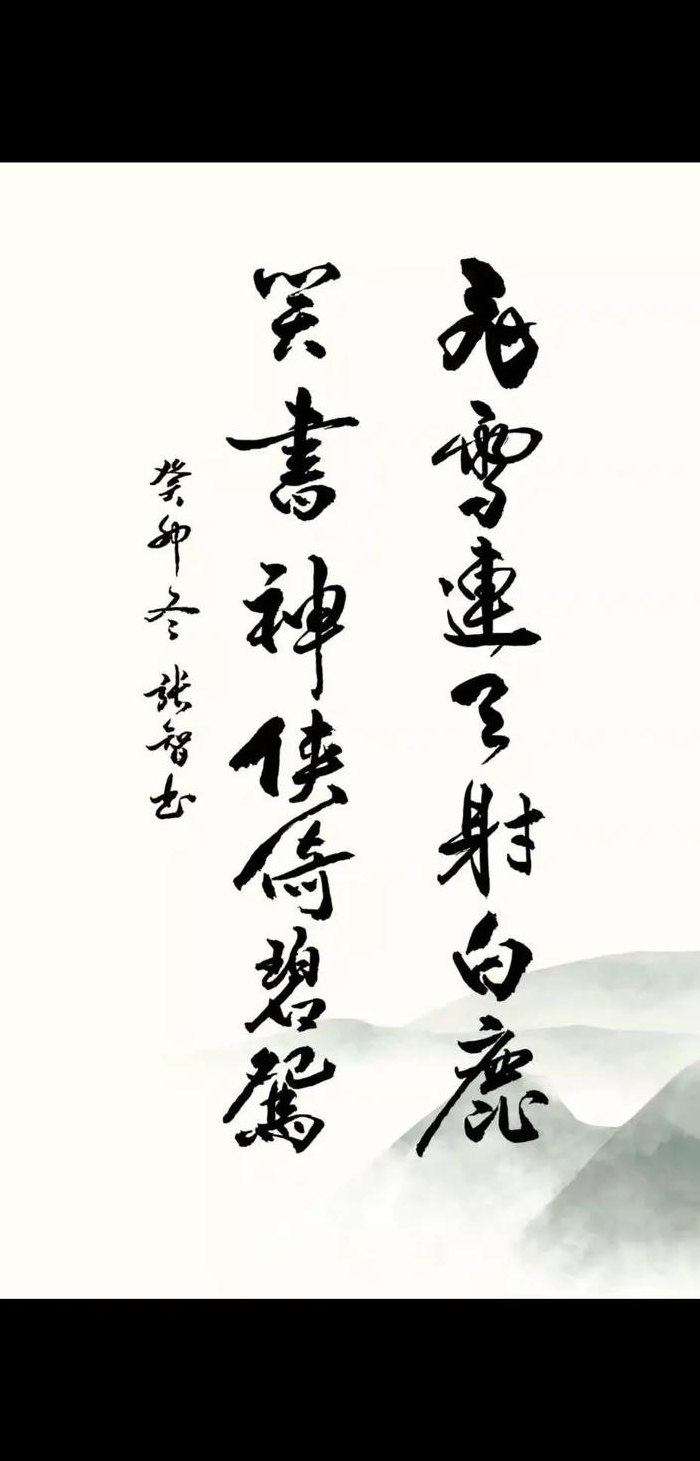 飛雪連天射白鹿
笑書神俠倚碧鴛
癸卯冬張智書